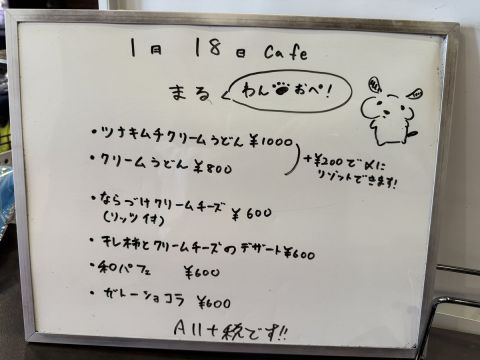 1月 18日 Cafe
まる
わん おぺ!
・ツナキムチクリームうどん ¥1000
・クリームうどん ¥800
+¥200で〆に
リゾットできます!
・ならづけクリームチーズ ¥600
(リッツ付)
・干し柿とクリームチーズのデザート ¥600
・和パフェ ¥600
・ガトーショコラ ¥600
All+税です!!